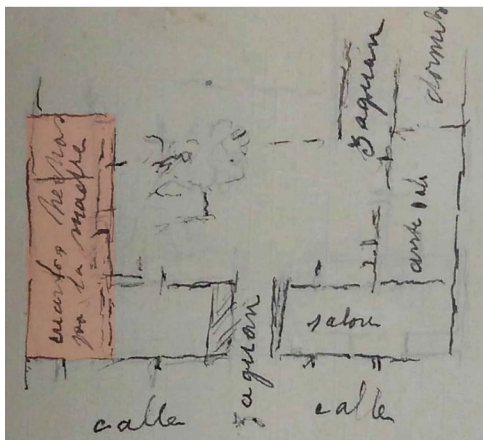 cuartos hechos
por la madre
Zaguán
dormit
ante sala
salon
Zaguan
calle
calle